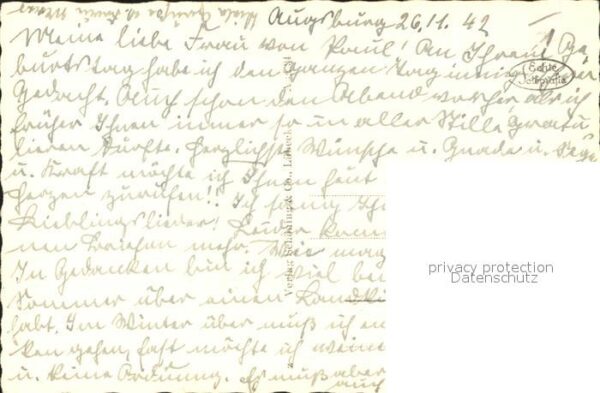 Viele Grüße
Augsburg 26.11.42
Meine liebe Frau von Paul! An Ihrem Ge-
burtstag habe ich den ganzen Tag innig
gedacht. Auch schon den Abend vorher als ich
früher Ihnen immer so in aller Stille gratu
lieren durfte. Herzlichste Wünsche u. Gnade u. Sege
u. Kraft möchte ich Ihnen heut
Herzen zurufen!! Ich sang Ih
Lieblingslieder! Leider kam
nen mehr. Wie mag
In Gedanken bin ich viel bei
Sommer über einen
habt. Im Winter über muß ich en
ken gehen, fast möchte ich weine
u. keine Ordnung. Es muß aber
auch
Echte
Verlag Schöning & Co., Lübeck
privacy protection
Datenschutz